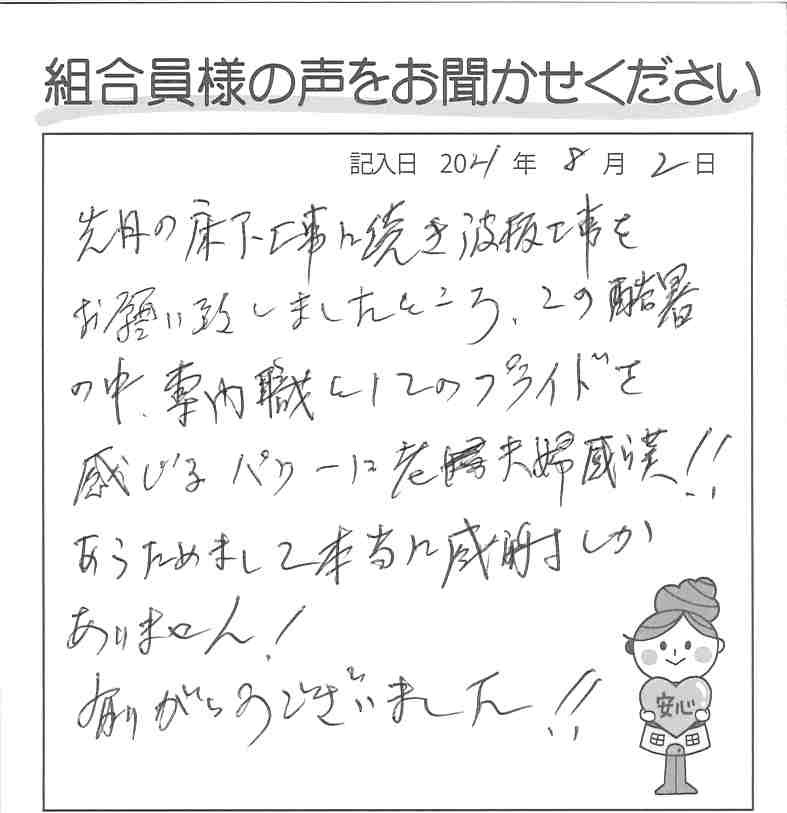 組合員様の声をお聞かせください
記入日 2021年 8月 2日
先月の床下工事に続き波板工事を
お願い致しましたところ、この酷暑
の中、専門職としてのプライドを
感じるパワーに老夫婦感漠!!
あらためまして本当に感謝しか
ありません!
有りがとうございました!!
安心